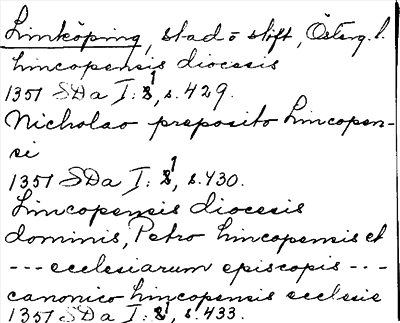 Linköping, stad o stift, Österg. l.
Lincopensis diocesis
1351 SDa I: 1, s. 429.
Nicholao preposito Lincopen-
si
1351 SDa I: 1, s. 430.
Lincopensis diocesis
dominis, Petro Lincopensis et
--- ecclesiarum episcopis ---
canonico Lincopensis ecclesie
1351 SDa I: 1, s. 433.